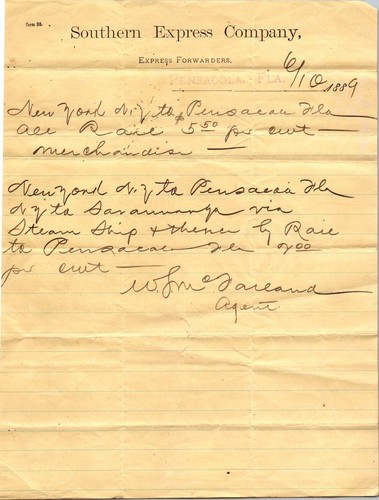 Form 28.
Southern Express Company,
EXPRESS FORWARDERS.
PENSACOLA, FLA.
6/10 1889
New York N.Y to Pensacola Fla
all Rail $5 50 per cwt —
merchandise —
New York N.Y to Pensacola Fla
N.Y to Savannah via
Steam Ship & thence by Rail
to Pensacola Fla
per cwt —
W. J. McFarland
Agent